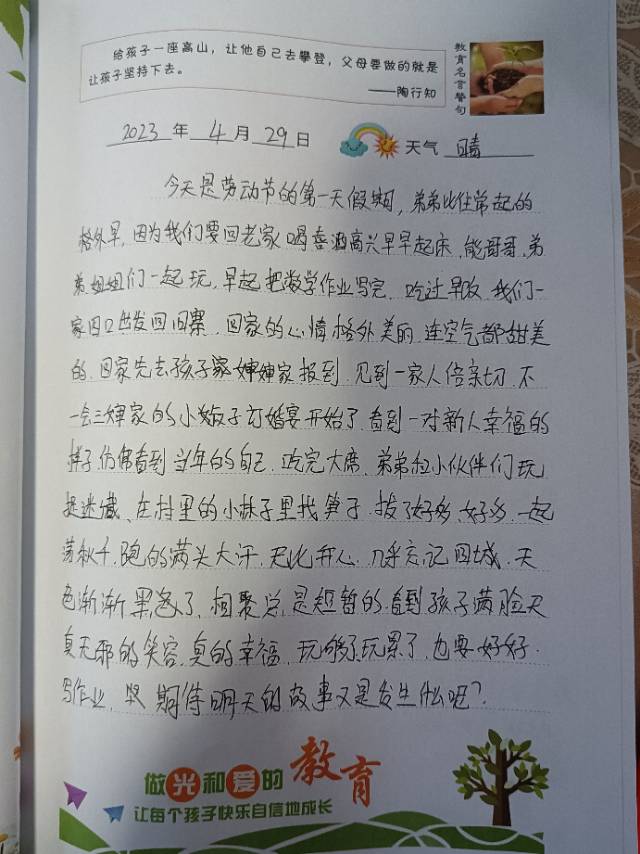 给孩子一座高山，让他自己去攀登，父母要做的就是
让孩子坚持下去。
——陶行知
教育名言警句
2023 年 4 月 29 日
天气 晴
今天是劳动节的第一天假期，弟弟比往常起的
格外早，因为我们要回老家喝喜酒高兴早早起床，能哥哥、弟
弟、姐姐们一起玩，早起把数学作业写完，吃过早饭，我们一
家四口出发回回寨，回家的心情格外美丽，连空气都甜美
的，回家先去孩子家婶婶家报到，见到一家人倍亲切，不
一会三婶家的小贩子订婚宴开始了，看到一对新人幸福的
样子仿佛看到当年的自己，吃完大席，弟弟和小伙伴们玩
捉迷藏、在村里的小林子里找笋子，拔了好多、好多，一起
荡秋千，跑的满头大汗，无比开心，几乎忘记回城，天
色渐渐黑了，相聚总是短暂的，看到孩子满脸天
真无邪的笑容，真的幸福，玩够了玩累了，也要好好
写作业，期待明天的故事又是发生什么呢？
做光和爱的教育
让每个孩子快乐自信地成长